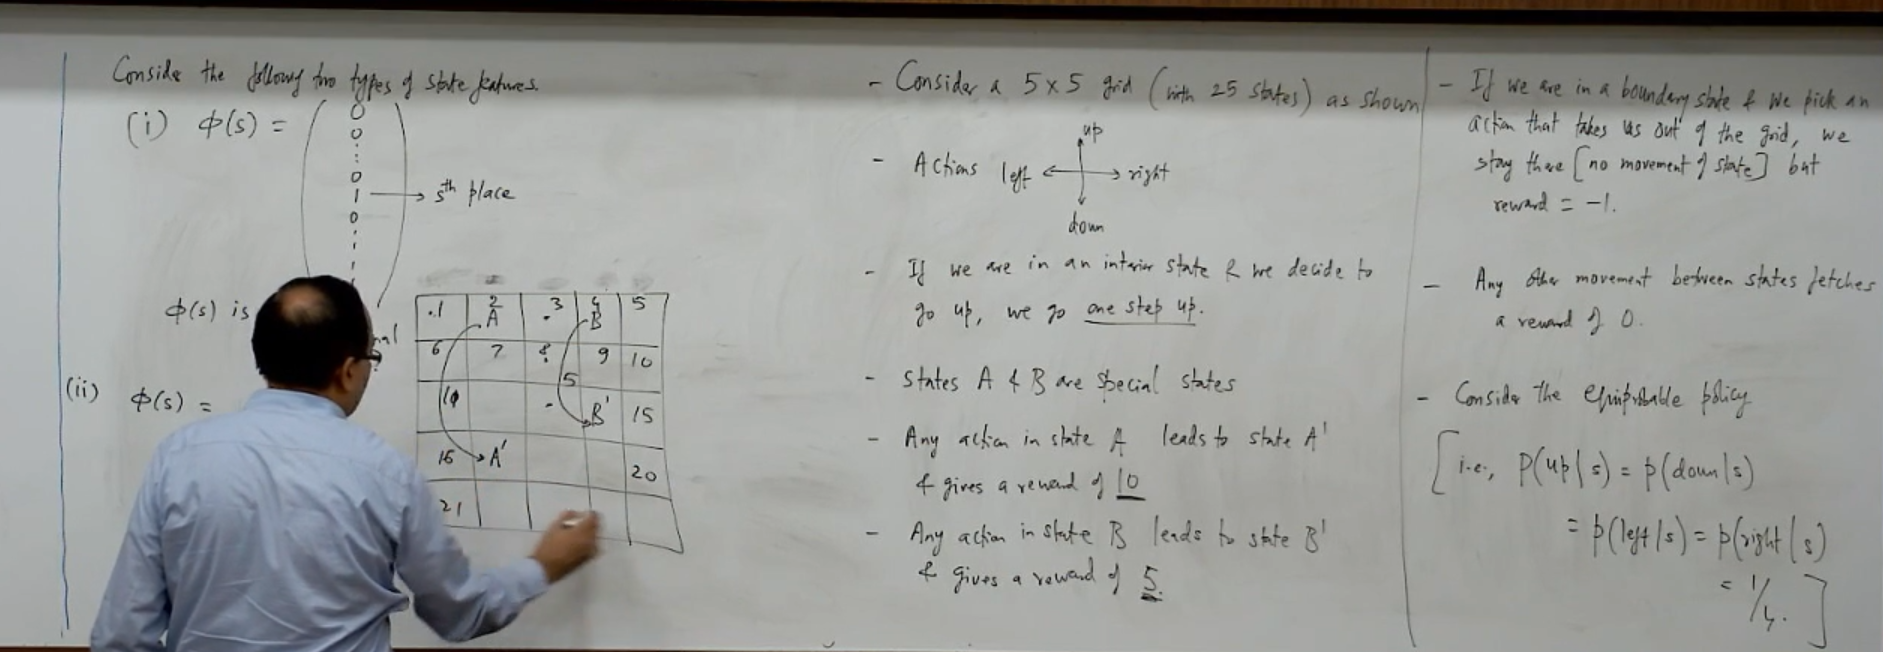 Consider the following two types of state features.
(i) φ(s) =
0
0
0
1 → sth place
0
φ(s) is
(ii) φ(s) =
.1 2 3 4 5
A B
6 7 8 9 10
5
B' 15
16 A' 20
21
- Consider a 5 x 5 grid (with 25 states) as shown
- Actions left up right
down
- If we are in an interior state & we decide to
go up, we go one step up.
- States A & B are special states
- Any action in state A leads to state A'
& gives a reward of 10
- Any action in state B leads to state B'
& gives a reward of 5.
- If we are in a boundary state & we pick an
action that takes us out of the grid, we
stay there [no movement of state] but
reward = -1.
- Any other movement between states fetches
a reward of 0.
- Consider the equiprobable policy
[i.e., p(up|s) = p(down|s)
= p(left|s) = p(right|s)
= 1/4.]